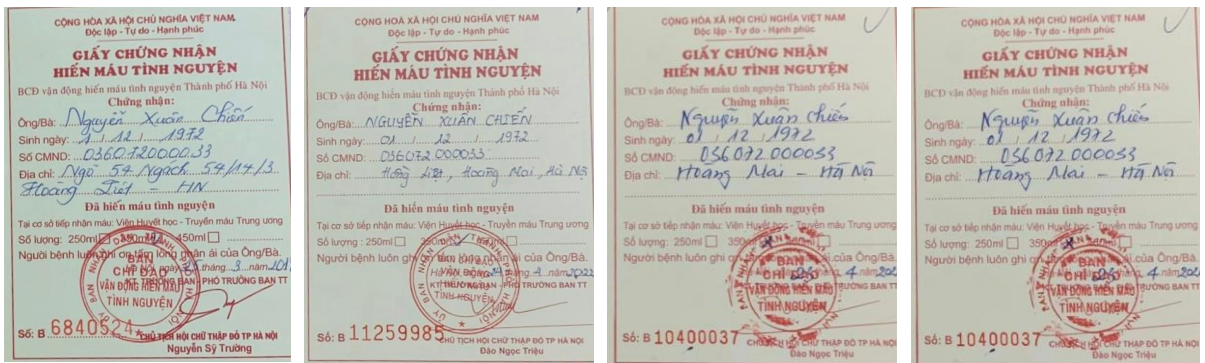 CỘNG HÒA XÃ HỘI CHỦ NGHĨA VIỆT NAM
Độc lập - Tự do - Hạnh phúc
GIẤY CHỨNG NHẬN
HIẾN MÁU TÌNH NGUYỆN
BCĐ vận động hiến máu tình nguyện Thành phố Hà Nội
Chứng nhận:
Ông/Bà: Nguyễn Xuân Chiến
Sinh ngày: 1 / 12 / 1972
Số CMND: 036072000033
Địa chỉ: Ngõ 54 Ngách 54/14/3
Hoàng Liệt - HN
Đã hiến máu tình nguyện
Tại cơ sở tiếp nhận máu: Viện Huyết học - Truyền máu Trung ương
Số lượng: 250ml 350ml 450ml
Người bệnh luôn ghi ơn tấm lòng nhân ái của Ông/Bà.
ngày 25 tháng 3 năm
BAN CHỈ ĐẠO VẬN ĐỘNG HIẾN MÁU TÌNH NGUYỆN
PHÓ TRƯỞNG BAN TT
Số: B 6840524
CHỦ TỊCH HỘI CHỮ THẬP ĐỎ TP HÀ NỘI
Nguyễn Sỹ Trường
CỘNG HOÀ XÃ HỘI CHỦ NGHĨA VIỆT NAM
Độc lập - Tự do - Hạnh phúc
GIẤY CHỨNG NHẬN
HIẾN MÁU TÌNH NGUYỆN
BCĐ vận động hiến máu tình nguyện Thành phố Hà Nội
Chứng nhận:
Ông/Bà: NGUYỄN XUÂN CHIẾN
Sinh ngày: 01 12 1972
Số CMND: 036072 000033
Địa chỉ: Hoàng Liệt, Hoàng Mai, Hà Nội
Đã hiến máu tình nguyện
Tại cơ sở tiếp nhận máu: Viện Huyết học - Truyền máu Trung ương
Số lượng : 250ml 350ml
Người bệnh luôn ghi ơn tấm lòng nhân ái của Ông/Bà.
tháng 4 năm 2022
PHÓ TRƯỞNG BAN TT
Số: B 11259985
CHỦ TỊCH HỘI CHỮ THẬP ĐỎ TP HÀ NỘI
Đào Ngọc Triệu
CỘNG HOÀ XÃ HỘI CHỦ NGHĨA VIỆT NAM
Độc lập - Tự do - Hạnh phúc
GIẤY CHỨNG NHẬN
HIẾN MÁU TÌNH NGUYỆN
BCĐ vận động hiến máu tình nguyện Thành phố Hà Nội
Chứng nhận:
Ông/Bà: Nguyễn Xuân Chiến
Sinh ngày: 01 / 12 / 1972
Số CMND: 036072000033
Địa chỉ: Hoàng Mai - Hà Nội
Đã hiến máu tình nguyện
Tại cơ sở tiếp nhận máu: Viện Huyết học - Truyền máu Trung ương
Số lượng : 250ml
Người bệnh luôn ghi ơn của Ông/Bà.
BAN CHỈ ĐẠO VẬN ĐỘNG HIẾN MÁU TÌNH NGUYỆN
Số: B 10400037
CHỦ TỊCH HỘI CHỮ THẬP ĐỎ TP HÀ NỘI
Đào Ngọc Triệu
CỘNG HOÀ XÃ HỘI CHỦ NGHĨA VIỆT NAM
Độc lập - Tự do - Hạnh phúc
GIẤY CHỨNG NHẬN
HIẾN MÁU TÌNH NGUYỆN
BCĐ vận động hiến máu tình nguyện Thành phố Hà Nội
Chứng nhận:
Ông/Bà: Nguyễn Xuân Chiến
Sinh ngày: 01 / 12 / 1972
Số CMND: 036072000033
Địa chỉ: Hoàng Mai - Hà Nội
Đã hiến máu tình nguyện
Tại cơ sở tiếp nhận máu: Viện Huyết học - Truyền máu Trung ương
Số lượng : 250ml
Người bệnh luôn ghi ơn của Ông/Bà.
BAN CHỈ ĐẠO VẬN ĐỘNG HIẾN MÁU TÌNH NGUYỆN
Số: B 10400037
CHỦ TỊCH HỘI CHỮ THẬP ĐỎ TP HÀ NỘI
Đào Ngọc Triệu